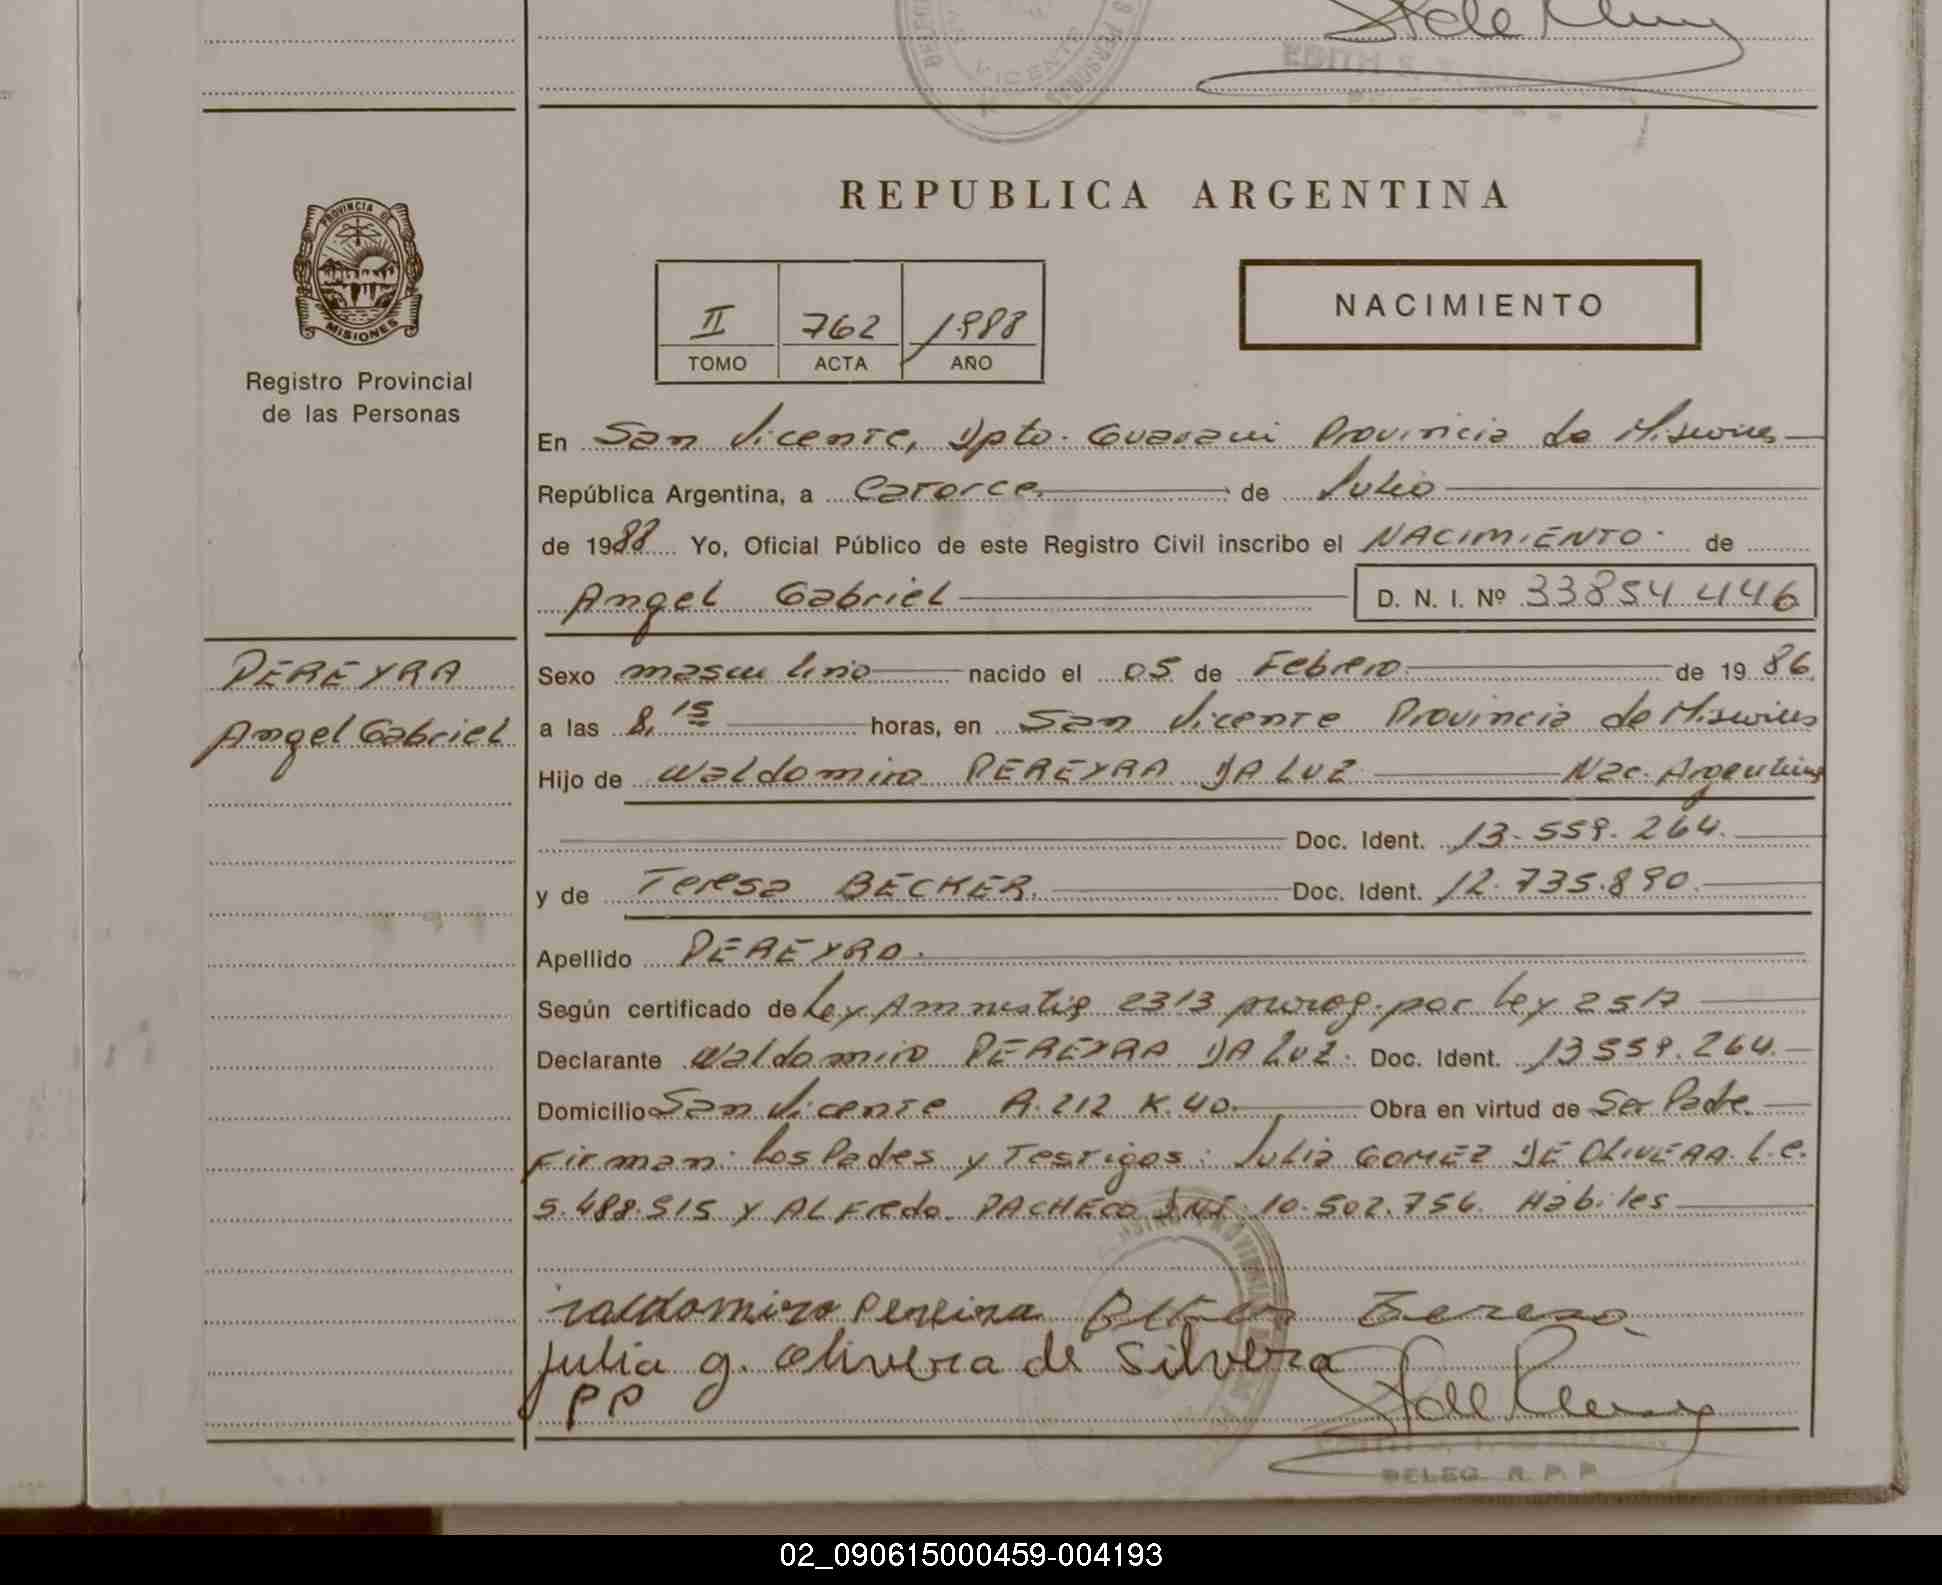 VICENTE
PROVINCIA DE
MISIONES
Registro Provincial
de las Personas
PEREYRA
Angel Gabriel
REPUBLICA ARGENTINA
II 762 1988
TOMO ACTA AÑO
NACIMIENTO
En San Vicente, Dpto. Guarani Provincia de Misiones
República Argentina, a Catorce de Julio
de 1988 Yo, Oficial Público de este Registro Civil inscribo el NACIMIENTO de
Angel Gabriel D. N. I. Nº 33854446
Sexo masculino nacido el 05 de Febrero de 1986
a las 8,15 horas, en San Vicente Provincia de Misiones
Hijo de Waldomiro PEREYRA DA LUZ Nac. Argentino
Doc. Ident. 13.559.264.
y de Teresa BECKER. Doc. Ident. 12.735.890.
Apellido PEREYRA.
Según certificado de Ley Amnistia 2313 prorog. por Ley 2517
Declarante Waldomiro PEREYRA DA LUZ. Doc. Ident. 13559.264.
Domicilio San Vicente A. 212 K. 40. Obra en virtud de Ser Padre.
Firman: Los Padres y Testigos: Julia GOMEZ DE OLIVERA. L.C.
5.488.515 Y ALFredo PACHECO DNI. 10.502.756. Habiles
Waldomiro Pereira Becker Tereza
Julia g. Olivera de Silveira
PP
DELEG. R. P. P.
02_090615000459-004193